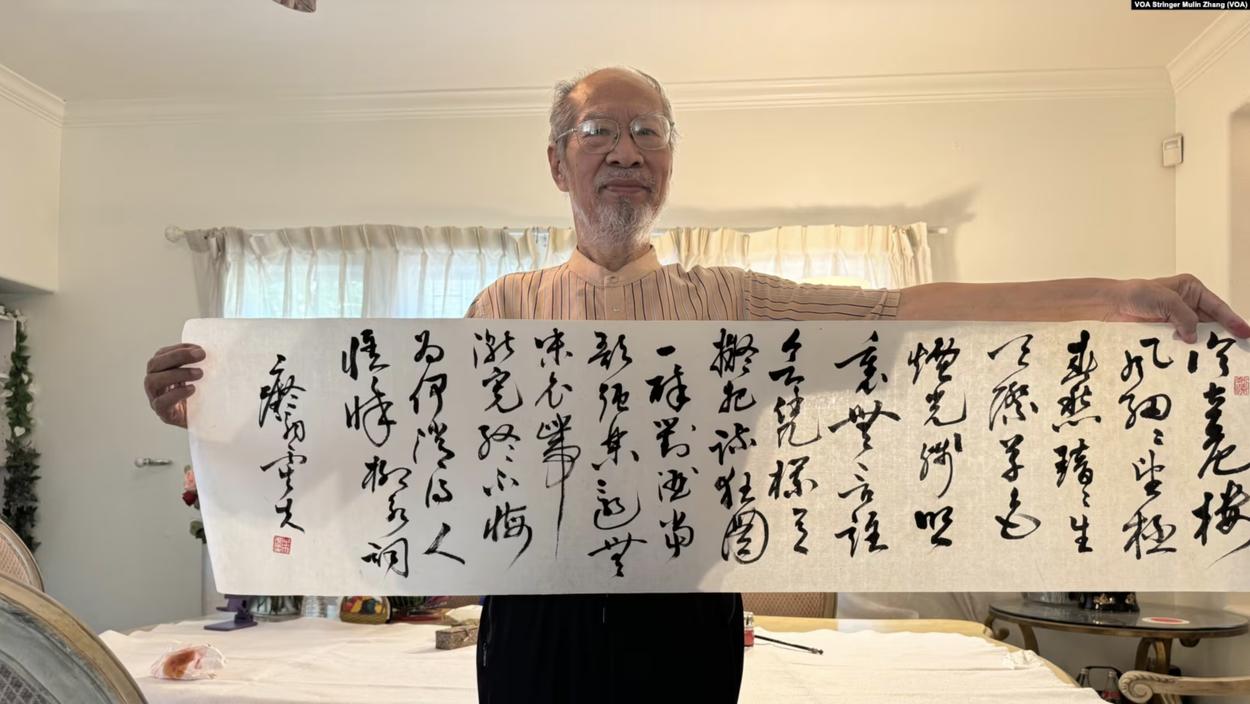 VOA Stringer Mulin Zhang (VOA)
危樓
風細々望極
春愁黯々生
天際草色
煙光殘照
裏無言誰
會凭欄意
擬把疏狂圖
一醉對酒當
歌強樂還無
味衣帶
漸寬終不悔
為伊消得人
憔悴柳永詞